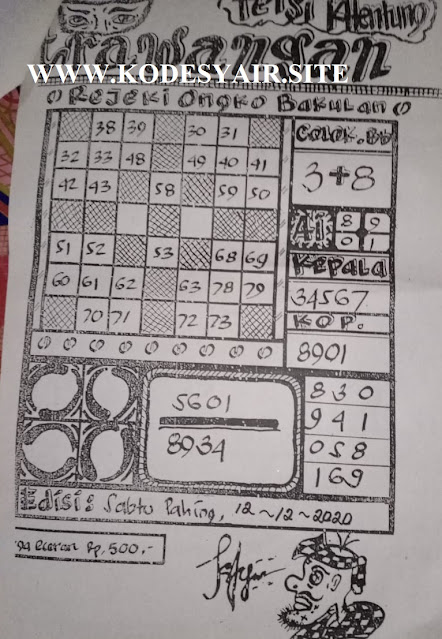 TEPSI KALENTUNG
Trawangan
WWW.KODESYAIR.SITE
Rejeki Ongko Bakulan
38 39 30 31
32 33 48 49 40 41
42 43 58 59 50
51 52 53 68 69
60 61 62 63 78 79
70 71 72 73
COLOK.BB
3+8
AI 8 9
0 1
KEPALA
34567
KOP.
8901
5601
8934
830
941
058
169
Edisi: Sabtu Pahing, 12~12~2020
Eceran Rp, 500,-